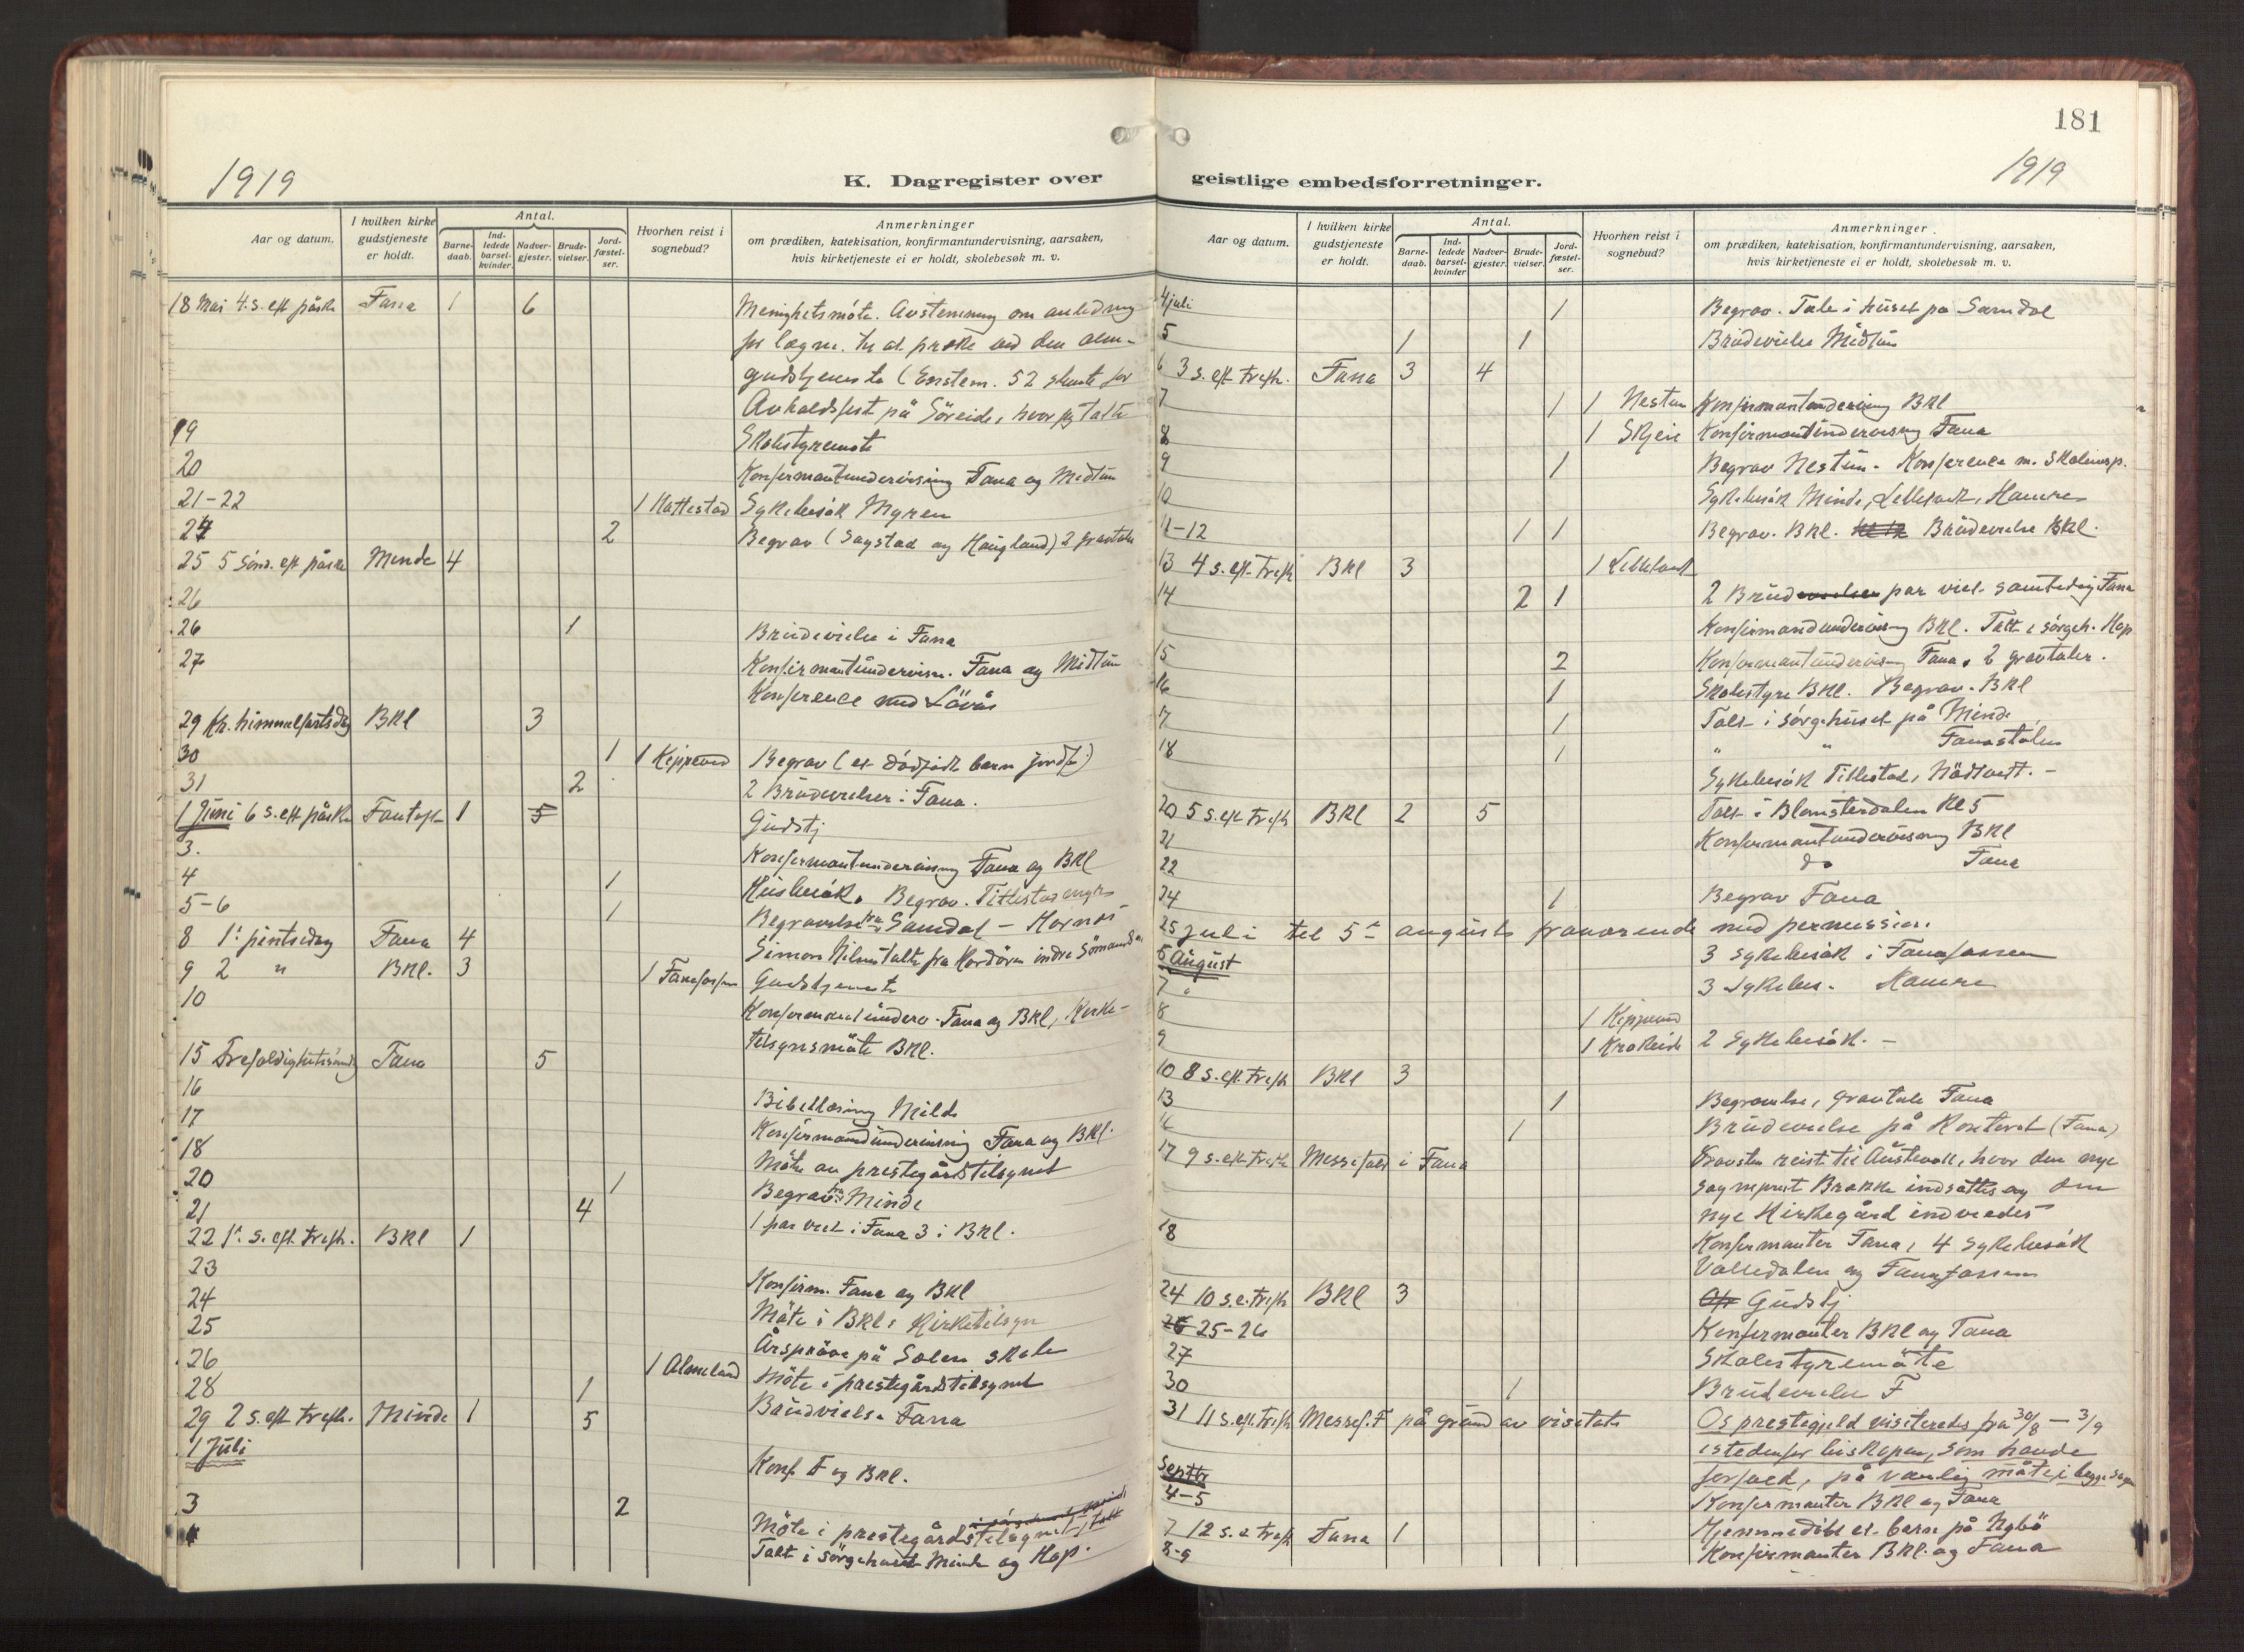 181
1919
1919
K. Dagregister over geistlige embedsforretninger.
Aar og datum.
I hvilken kirke gudstjeneste er holdt.
Antal.
Barnedaab.
Indledede barselkvinder.
Nadvergjester.
Brudevielser.
Jordfæstelser.
Hvorhen reist i sognebud?
Anmerkninger
om prædiken, katekisation, konfirmantundervisning, aarsaken,
hvis kirketjeneste ei er holdt, skolebesøk m. v.
18 Mai 4. s. eft påske Fana 1 6 Menighetsmöte. Avstemning om anledning
for lægm. til at præke ved den alm-
gudstjeneste (Enstem. 52 stemte for
Avholdsfest på Söreide, hvor jeg talte
19 Skolestyremöte
20 Konfirmantundervisning Fana og Midtun
21-22 1 Nattestad Sykebesök Myren
24 2 Begrav (Sagstad og Haugland) 2 gravtaler
25 5 Sönd. eft påske Minde 4
26
26 1 Brudevielse i Fana
27 Konfirmantundervisn. Fana og Midtun
Konference med Lövås
29 Kr. himmelfartsdag BKl 3
30 1 1 Kippersund Begrav (et dödfödt barn jordf.)
31 2 2 Brudevielser i Fana.
1 Juni 6 s. eft påske Fantoft 1 5 Gudstj
3. Konfirmantundervisning Fana og BKl
4 1 Husbesök. Begrav. Titlestad
5-6 1 Begravelse fra Samdal - Hornnes
8 1. pintsedag Fana 4 Simon Nilsen talte fra Kordören indre Sömands
9 2 " BKl. 3 1 Fanafossen Gudstjeneste
10 Konfirmantunderv. Fana og BKl, Kirke-
tilsynsmöte BKl.
15 Trefoldighetssöndag Fana 5
16 Bibellæsning Milde
17 Konfirmandundervisning Fana og BKl.
18 Möte av prestegårdstilsynet
20 1 Begrav fra Minde
21 4 1 par viet i Fana 3 i BKl.
22 1. s. eft. trefh. BKl 1
23 Konfirm. Fana og BKl
24 Möte i BKl: Kirketilsyn
25 Årspröve på Solen skole
26 1 Almeland Möte i prestegårdstilsynet
28 1 Brudvielse Fana
29 2 s. eft trefh. Minde 1 5
1 Juli Konf F og BKl.
3 2 Möte i prestegårdstilsynet, talt
Talt i sörgehuset Minde og Hop.
Aar og datum.
I hvilken kirke gudstjeneste er holdt.
Antal.
Barnedaab.
Indledede barselkvinder
Nadvergjester.
Brudevielser.
Jordfæstelser.
Hvorhen reist i sognebud?
Anmerkninger.
om prædiken, katekisation, konfirmantundervisning, aarsaken,
hvis kirketjeneste ei er holdt, skolebesøk m. v.
4 juli 1 Begrav. Tale i huset på Samdal
5 1 1 Brudevielse Midtun
6 3 s. eft trefh. Fana 3 4
7 1 1 Nestun Konfirmantundervisning BKl
8 1 Skjeie Konfirmantundervisning Fana
9 1 Begrav Nestun. Konference m. Skoleinsp.
10 Sykebesök Minde, Hamre
11-12 1 1 Begrav. BKl. Brudevielse BKl.
13 4 s. eft. trefh BKl 3 1
14 2 1 2 Brudevielser par viet samtidig Fana
Konfirmandundervisning BKl. Talt i sörgeh. Hop
15 2 Konfirmantundervisning Fana, 2 gravtaler.
16 1 Skolestyre BKl. Begrav. BKl
17 1 Talt i sörgehuset på Minde
18 1 " " Fanastölen
Sykebesök Titlestad, Nödtvedt. -
20 5 s. eft trefh BKl 2 5 Talt i Blomsterdalen Kl 5
21 Konfirmantundervisning BKl
22 do Fana
24 1 Begrav Fana
25 juli til 5te august fraværende med permission.
5 August 3 sykebesök i Fanafossen
7 " 3 sykebes. Hamre
8 1 Kippersund
9 1 Krokeide 2 sykebesök. -
10 8 s. eft. trefh BKl 3
13 1 Begravelse, gravtale Fana
16 1 Brudevielse på Klosteret (Fana)
17 9 s. eft trefh Messefald i Fana Provsten reist til Austevoll, hvor den nye
sogneprest Brakke indsattes og den
nye Kirkegård indviedes
18 Konfirmanter Fana, 4 sykebesök
Vallsdalen og Fanafossen
24 10 s. e. trefh BKl 3 Gudstj
25-26 Konfirmanter BKl og Fana
27 Skolestyremöte
30 1 Brudevielse F
31 11 s. eft. trefh Messef. F på grund av visitats Os prestegjeld visiteredes fra 30/8 - 3/9
istedenfor biskopen, som havde
forfald, på vanlig måte, i begge sogn
Septbr
4-5 Konfirmanter BKl og Fana
7 12 s. e trefh Fana 1 Hjemmedöbt et barn på Nybö
8-9 Konfirmanter BKl. og Fana